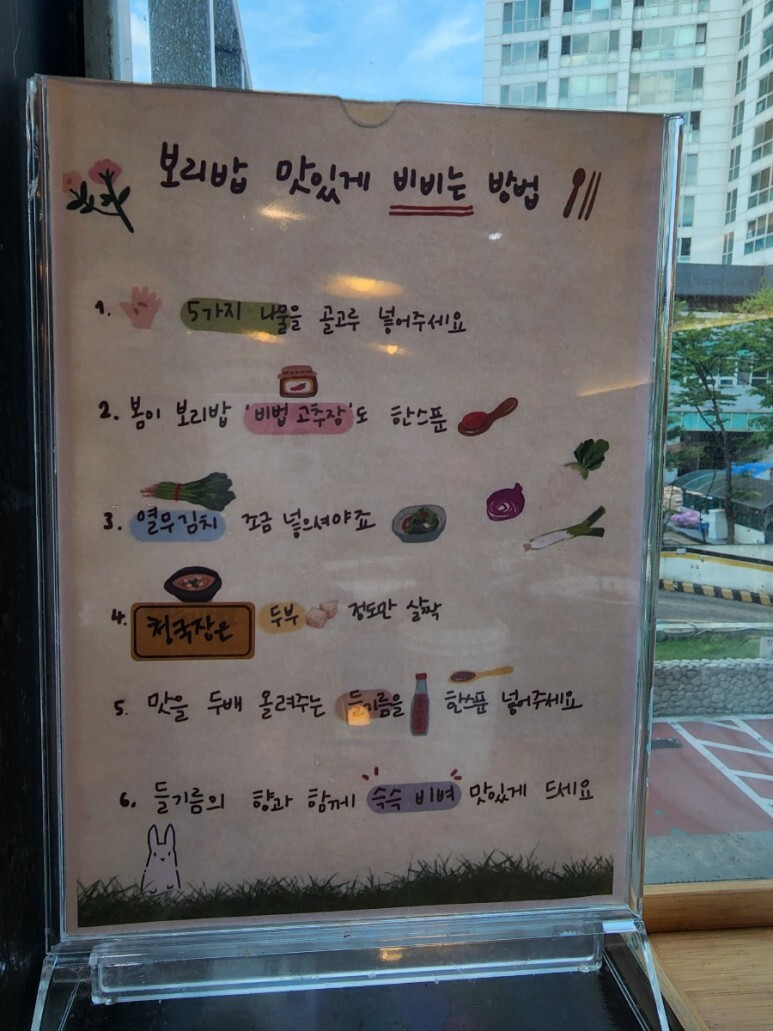 보리밥 맛있게 비비는 방법
1. 5가지 나물을 골고루 넣어주세요
2. 봄이 보리밥 '비법 고추장'도 한스푼
3. 열무김치 조금 넣으셔야죠
4. 청국장은 두부 정도만 살짝
5. 맛을 두배 올려주는 들기름을 한스푼 넣어주세요
6. 들기름의 향과 함께 슥슥 비벼 맛있게 드세요